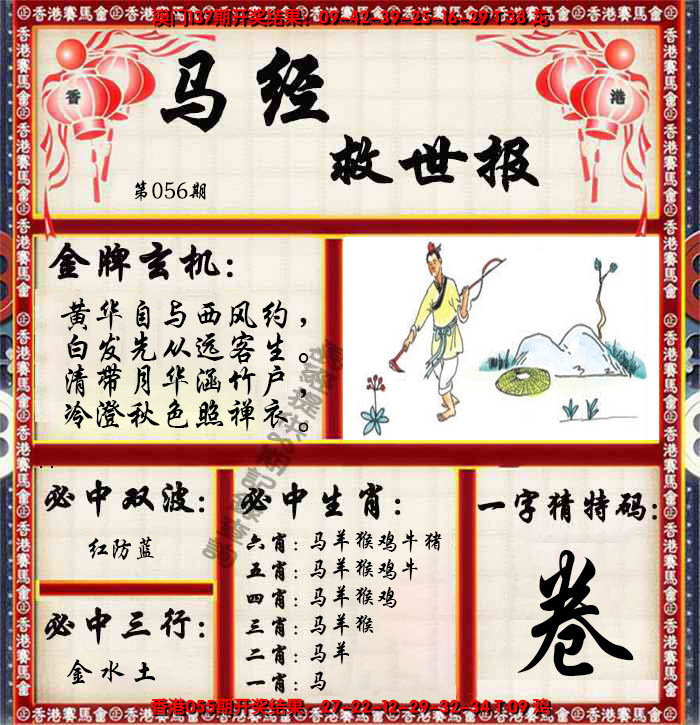 澳门137期开奖结果：09-42-39-25-16-29 T:38 龙
香 港
马经
救世报
第056期
金牌玄机：
黄华自与西风约，
白发先从远客生。
清带月华涵竹户，
冷澄秋色照禅衣。
必中双波：
红防蓝
必中三行：
金水土
必中生肖：
六肖：马羊猴鸡牛猪
五肖：马羊猴鸡牛
四肖：马羊猴鸡
三肖：马羊猴
二肖：马羊
一肖：马
一字猜特码：
卷
香港055期开奖结果：27-22-12-29-32-14 T:09 鸡
香港賽馬會